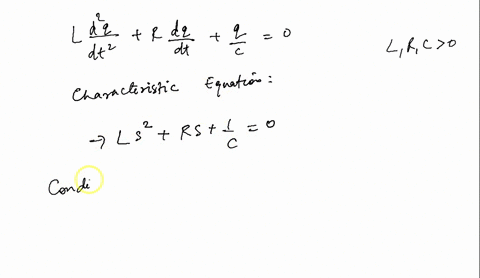 L d²q/dt² + R dq/dt + q/c = 0
L, R, C > 0
Characteristic Equation:
→ L s² + RS + 1/C = 0
Condi